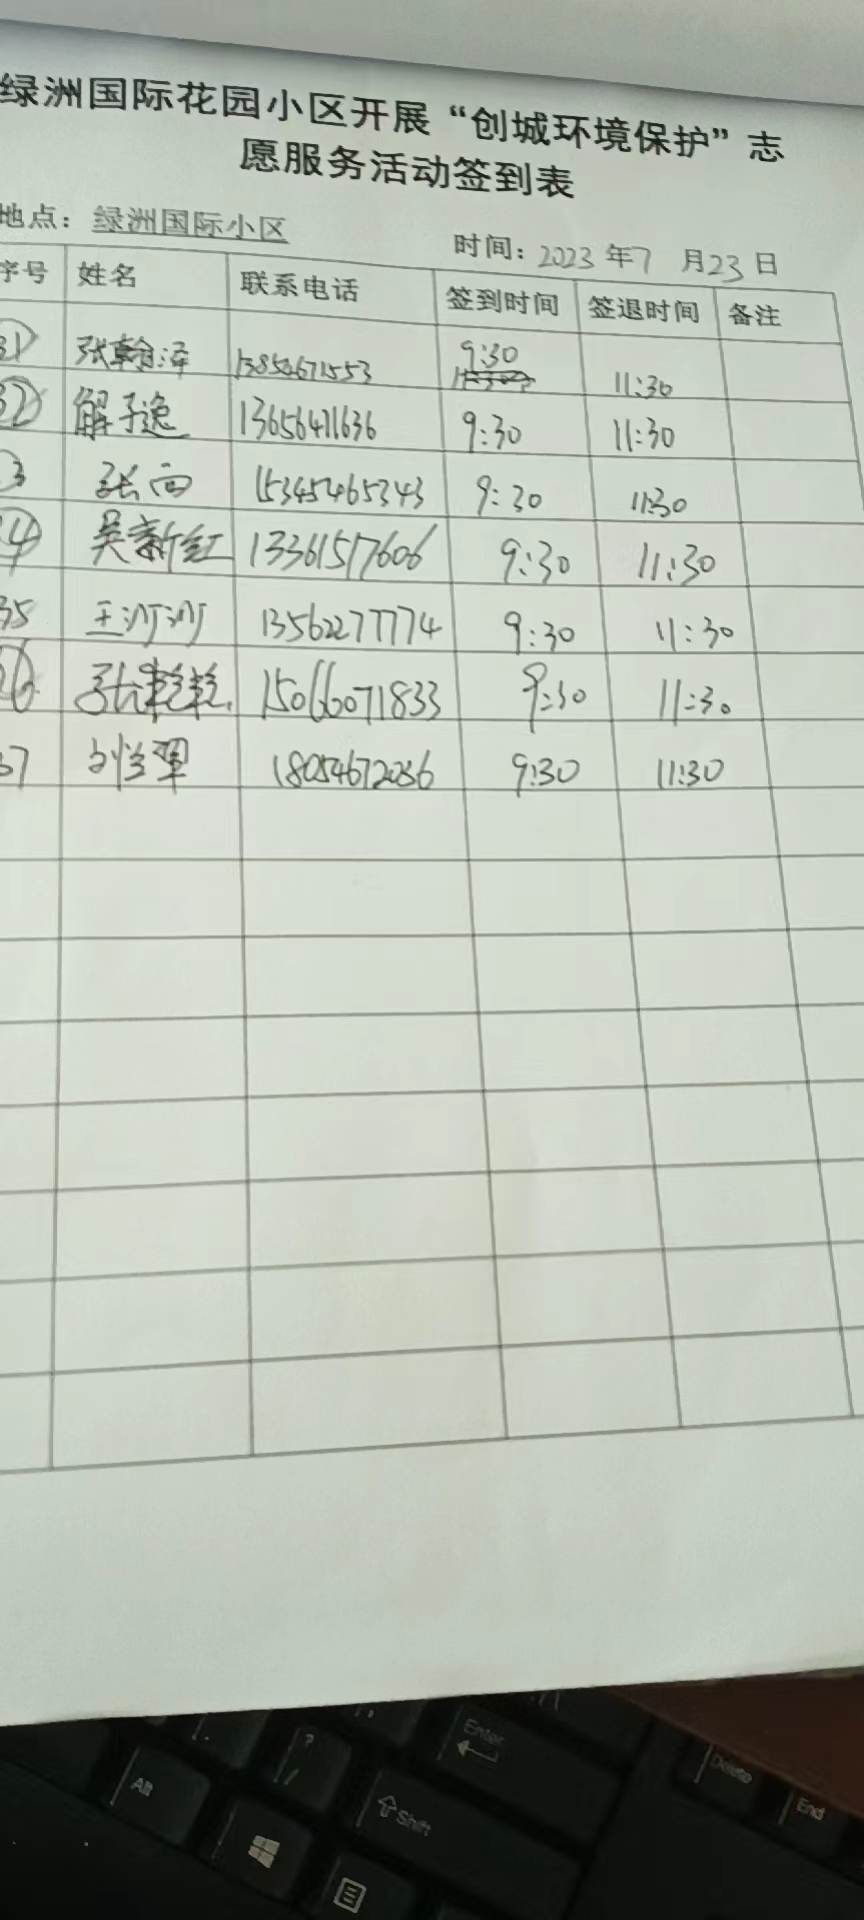 绿洲国际花园小区开展“创城环境保护”志
愿服务活动签到表
地点：绿洲国际小区 时间：2023年7月23日
序号 姓名 联系电话 签到时间 签退时间 备注
31 张翰泽 13854671553 9:30 11:30
32 解子逸 13656471636 9:30 11:30
3 张 15345465343 9:30 11:30
4 吴新红 13361517606 9:30 11:30
35 王沙沙 13562277774 9:30 11:30
36 张乾乾 15066071833 9:30 11:30
37 18054672086 9:30 11:30
Enter
Delete
?
/
Alt
Shift
End